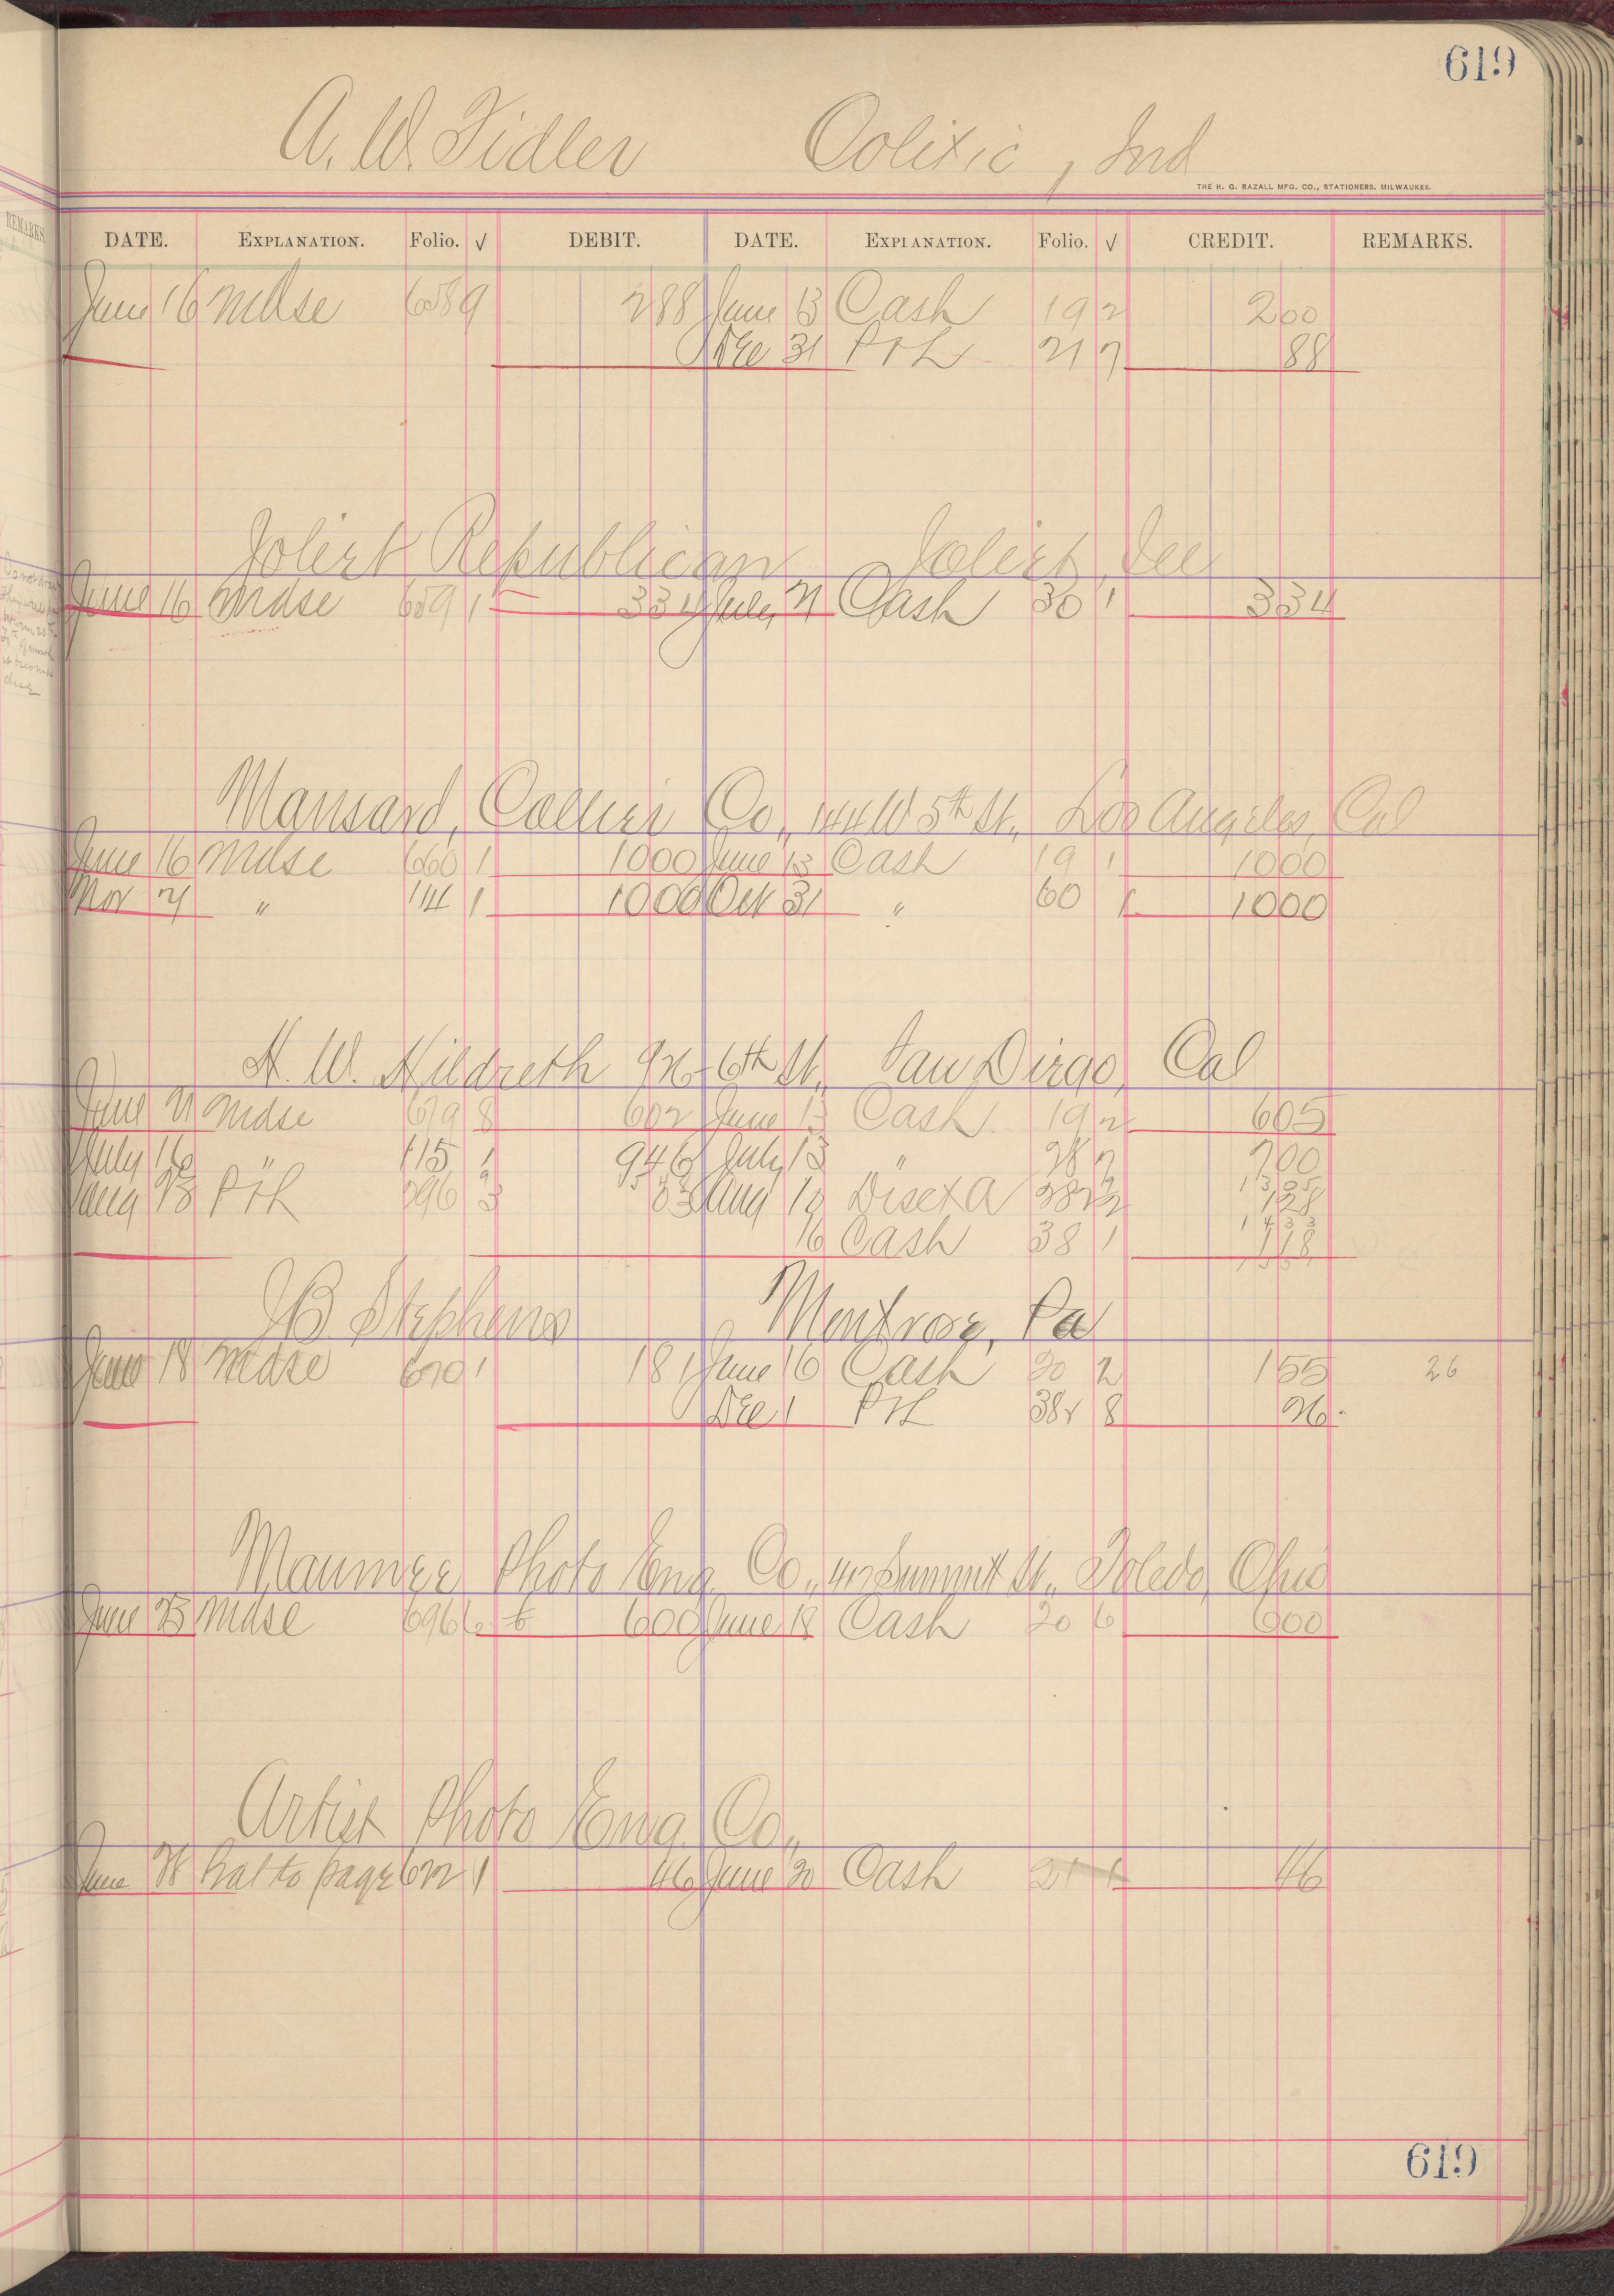 619
A. W. Fidler Oolitic, Ind
THE H. G. RAZALL MFG. CO., STATIONERS, MILWAUKEE.
DATE. EXPLANATION. Folio. √ DEBIT. DATE. EXPLANATION. Folio. √ CREDIT. REMARKS.
June 16 Mdse 658 9 288 June 13 Cash 19 2 200
Dec 31 P+L 217 88
Joliet Republican Joliet, Ill
June 16 Mdse 659 1 334 July 21 Cash 30 1 334
Mansard, Collier Co., 144 W 5th St., Los Angeles, Cal
June 16 Mdse 660 1 1000 June 13 Cash 19 1 1000
Nov 21 " 114 1 1000 Oct 31 " 60 1 1000
H. W. Hildreth 926-6th St., San Diego, Cal
June 21 Mdse 679 8 602 June 13 Cash 19 2 605
July 16 " 115 1 946 July 13 " 28 2 700
Aug 28 P+L 296 3 03 Aug 10 Disct A 282 2 128
16 Cash 38 1 118
JB Stephens Montrose, Pa
June 18 Mdse 670 1 181 June 16 Cash 20 2 155 26
Dec 1 P+L 382 8 26
Maumee Photo Eng. Co., 412 Summit St., Toledo, Ohio
June 25 Mdse 696 6 600 June 18 Cash 20 6 600
Artist Photo Eng. Co.,
June 28 bal to page 622 1 46 June 20 Cash 21 1 46
619